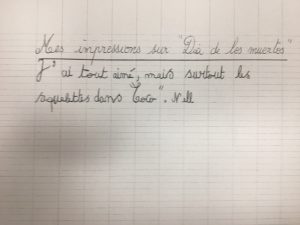 Mes impressions sur "Dià de los muertos"
J'ai tout aimé, mais surtout les
squelettes dans "Coco". Nell